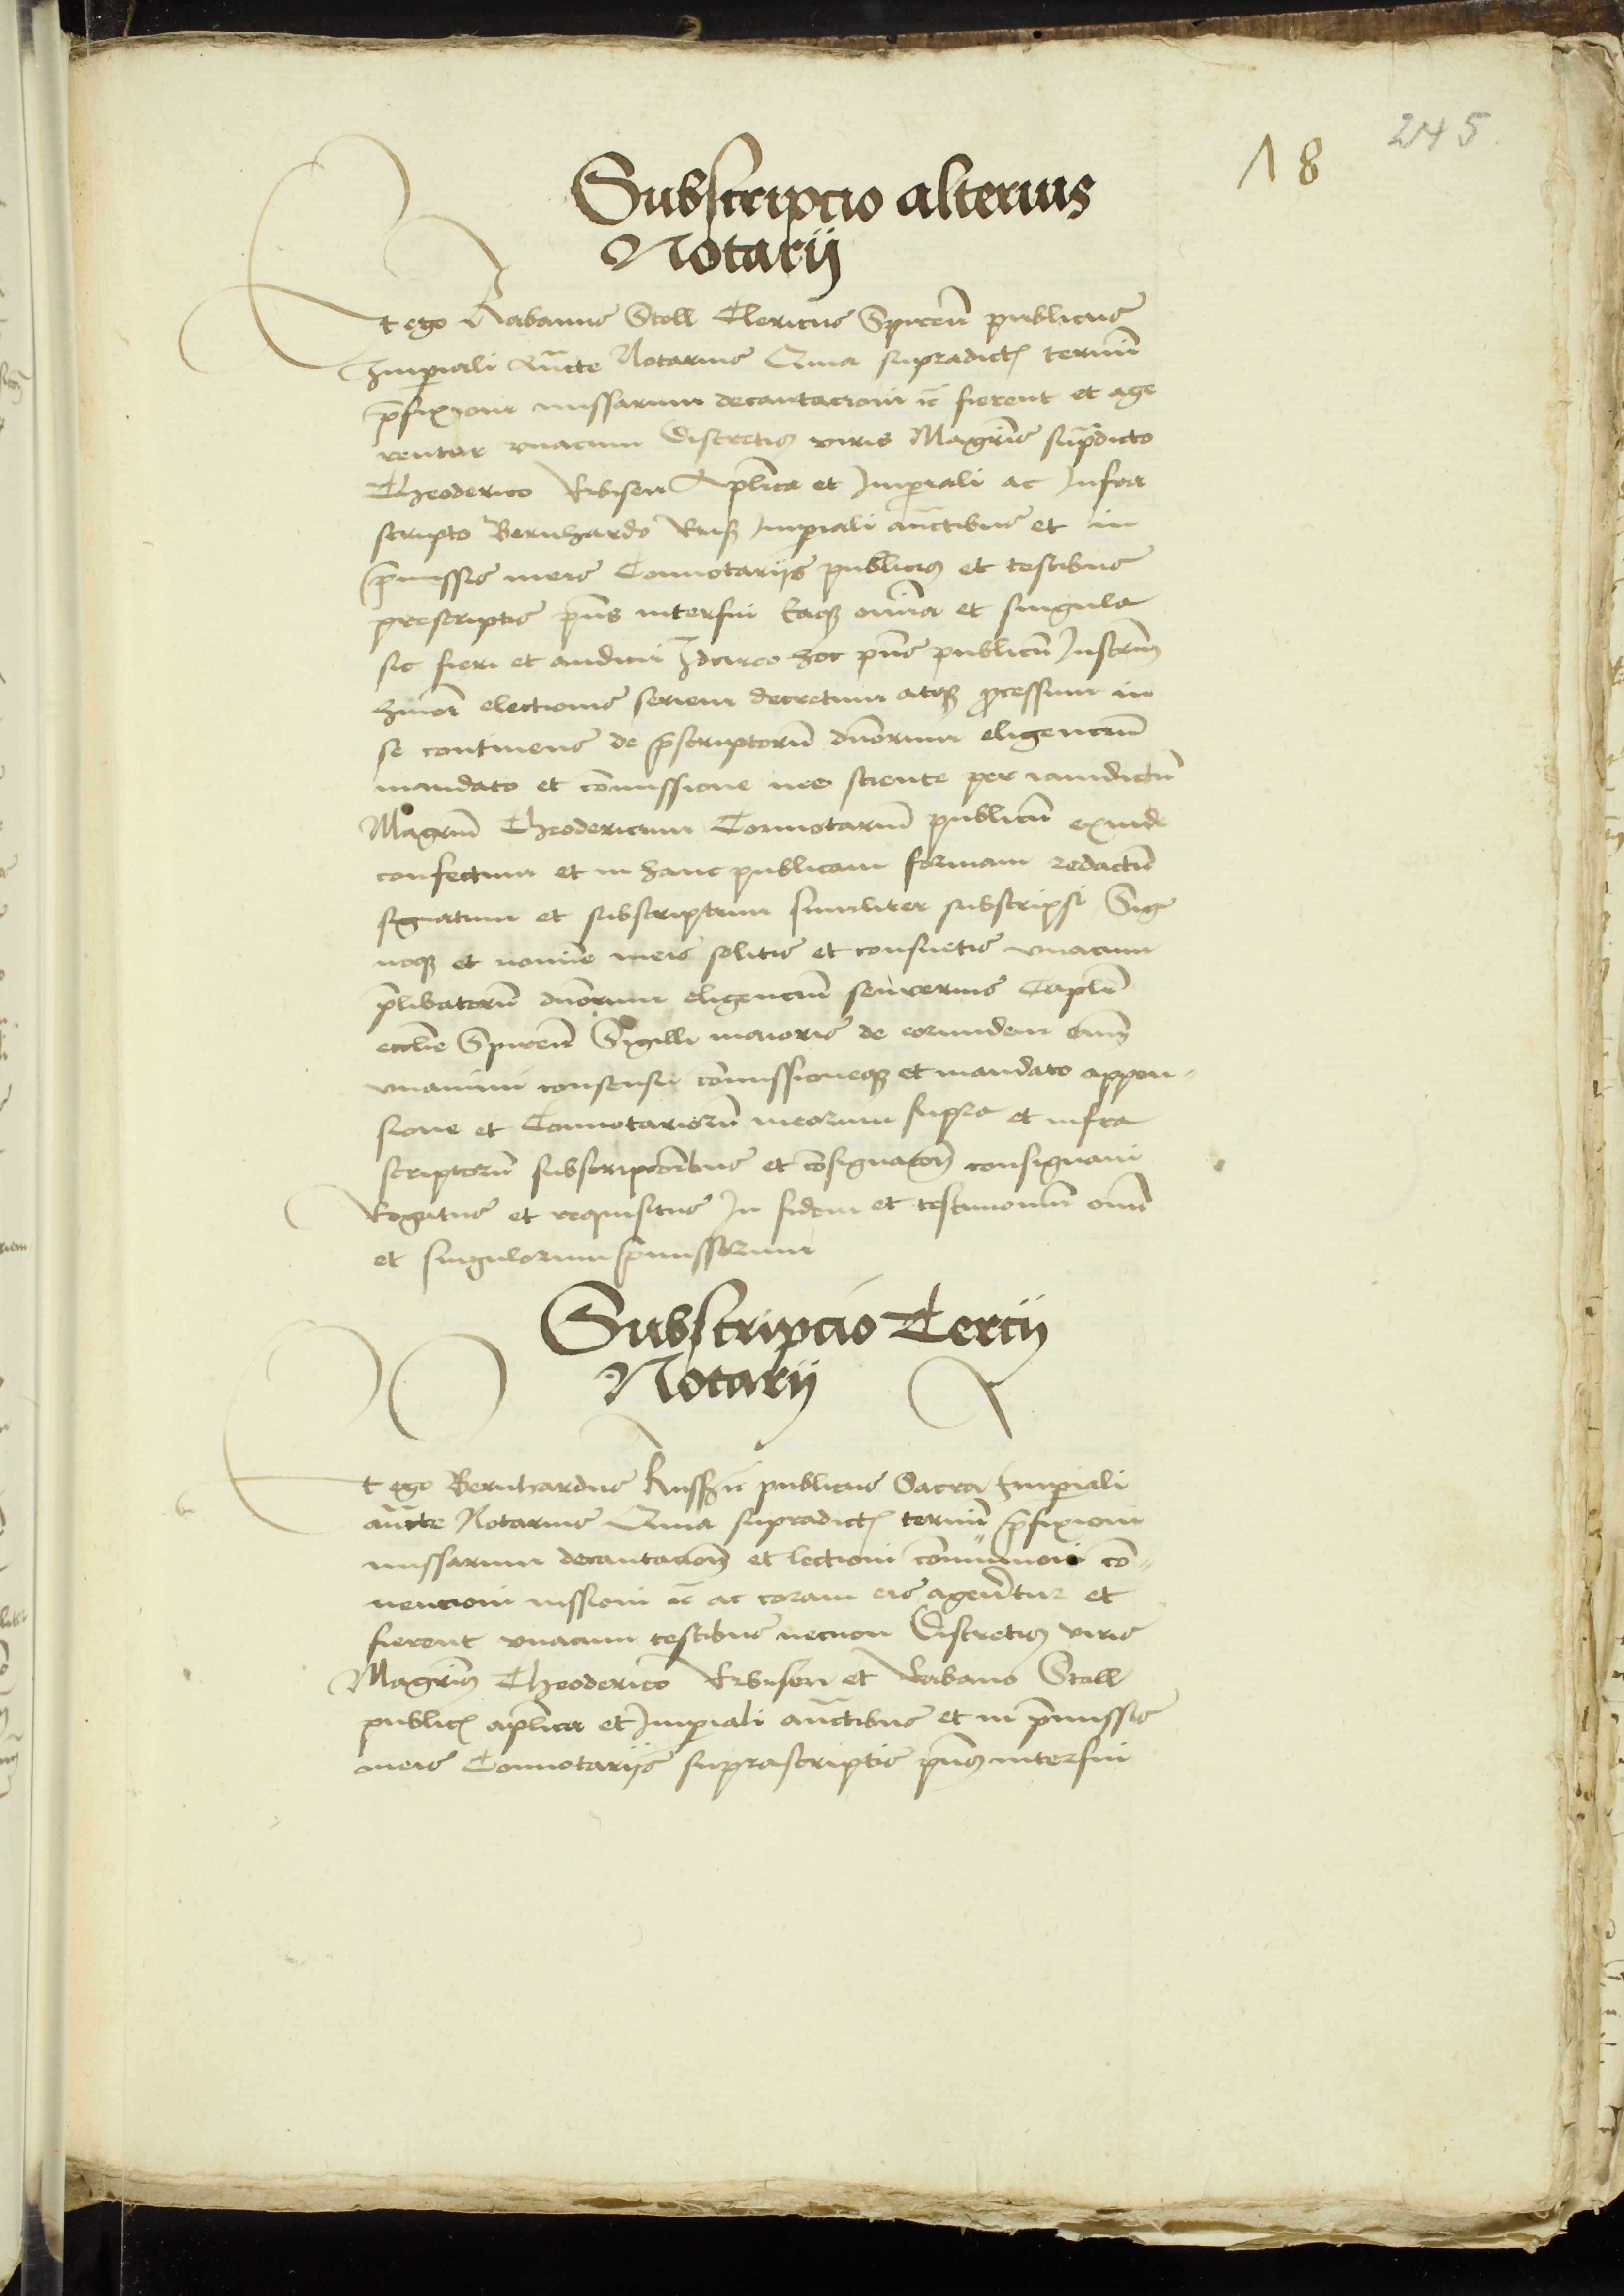 245.
18
Subscripcio alterius
Notarij
Et ego Rabanus Stoll Clericus Spiren̄ publicus
Imperiali auc̄te Notarius Quia supradict̄ termin̄
p̄fixioni missarum decantacioni ꝛc fierent et age
rentur vnacum Discretis viris Magr̄is supradicto
Theoderico Ap̄lica et Imperiali ac Infra
scripto Bernhardo Imperiali auc̄tibus et in
p̄missis meis Connotarijs publicis et testibus
prescriptis pn̄s interfui Eaqꝫ om̄ia et singula
sic fieri et audiui Idcirco hoc pn̄s publicū Instrm̄
hmōi electionis seriem decretum atqꝫ ꝓcessum in
se continens de p̄scriptorū dn̄orum eligenciū
mandato et com̄issione me sciente per iamdictū
Magrm̄ Theodericum Connotariū publicū exinde
confectum et in hanc publicam formam redactū
signatum et subscriptum similiter subscripsi Sig
noqꝫ et nomīe meis solitis et consuetis vnacum
p̄libatorū dn̄orum eligenciū seuverius Caplī
eccl̄ie Spiren̄ Sigilli maioris de eorundem om̄
vnanimi consensu com̄issioneqꝫ et mandato appen-
sione et Connotariorū meorum supra et infra
scriptorū subscripcōnibus et cōsignacōn̄ consignaui
Rogatus et requisitus In fidem et testimoniū om̄
et singulorum p̄missorum
Subscripcio Tercij
Notarij
Et ego Bernhardus publicus Sacra Imperiali
auc̄te Notarius Quia supradict̄ termin̄ p̄fixioni
missarum decantacōn̄ et lectioni cō-
nencioni missioni ꝛc ac coram eis agerētur et
fierent vnacum testibus necnon Discretis viris
Magrīs Theoderico et Rabano Stoll
public̄ ap̄lica et Imperiali auc̄tibus et in p̄missis
meis Connotarijs suprascriptis pn̄s interfui